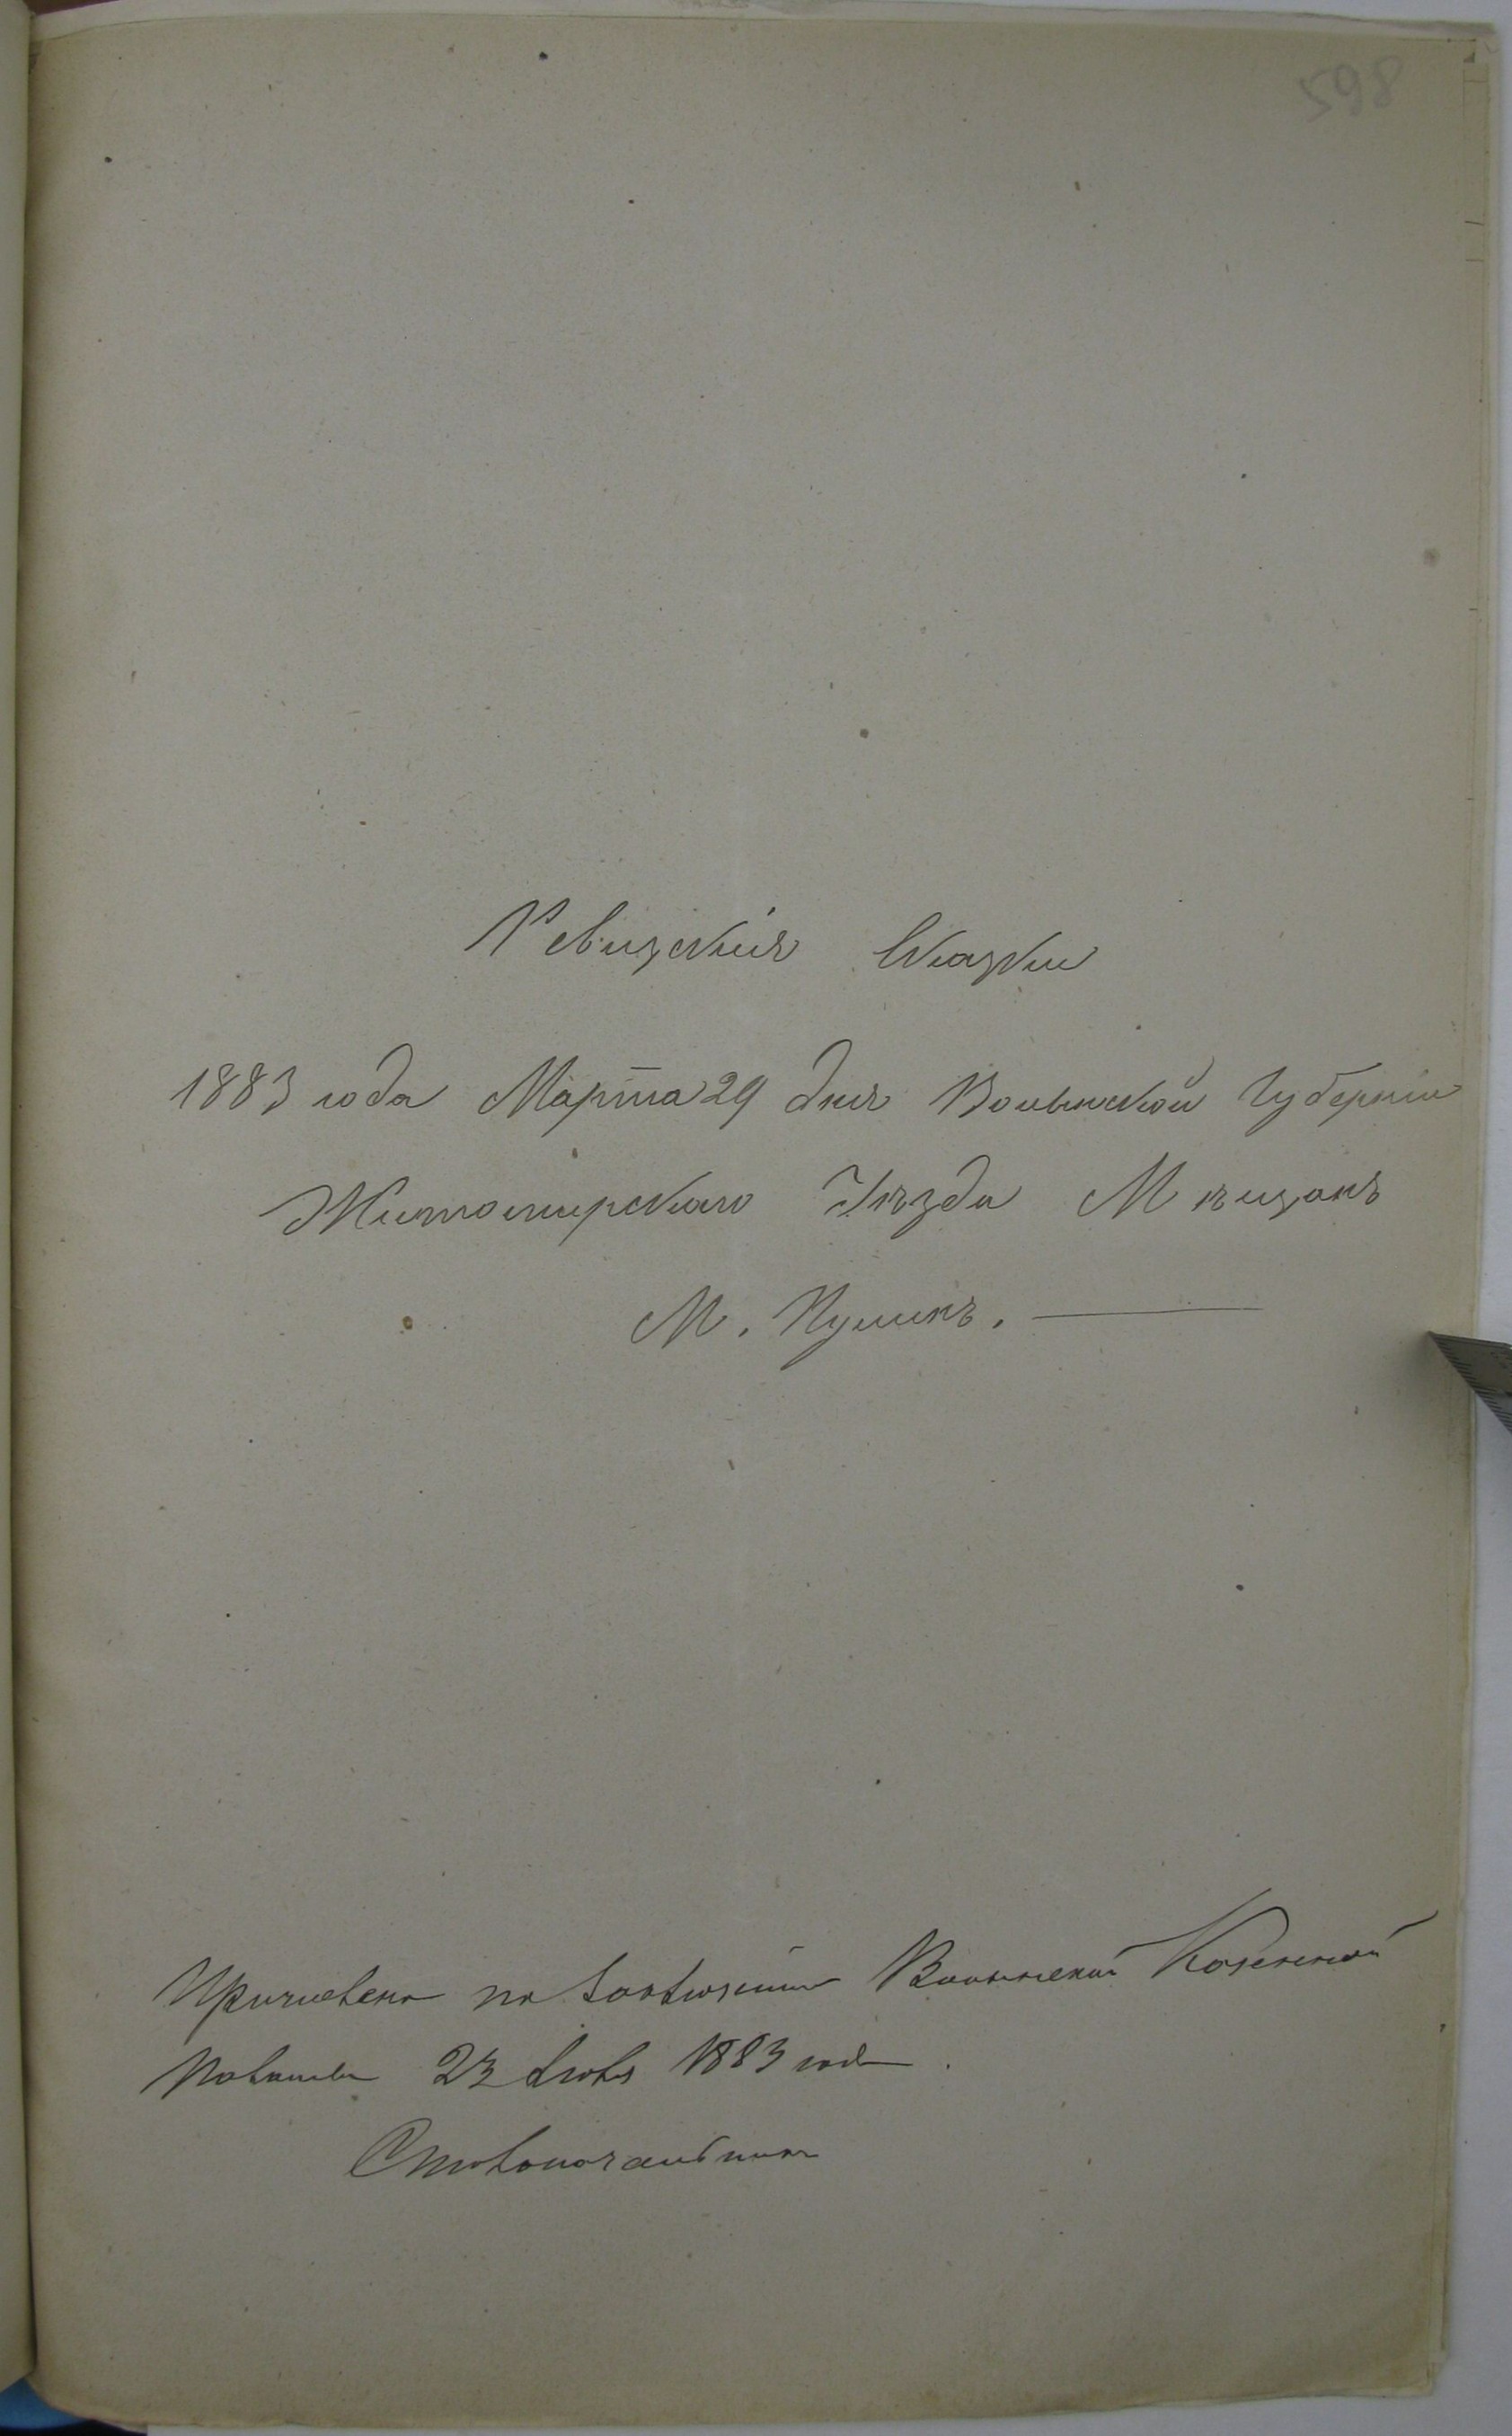 598
Ревизскія Сказки
1883 года Марта 29 дня Волынской Губерніи
Житомирскаго Уѣзда Мѣщанъ
М. Пулинъ.
Причислена по Волынской Казенной
Палаты 23 1883 года.
Столоначальникъ